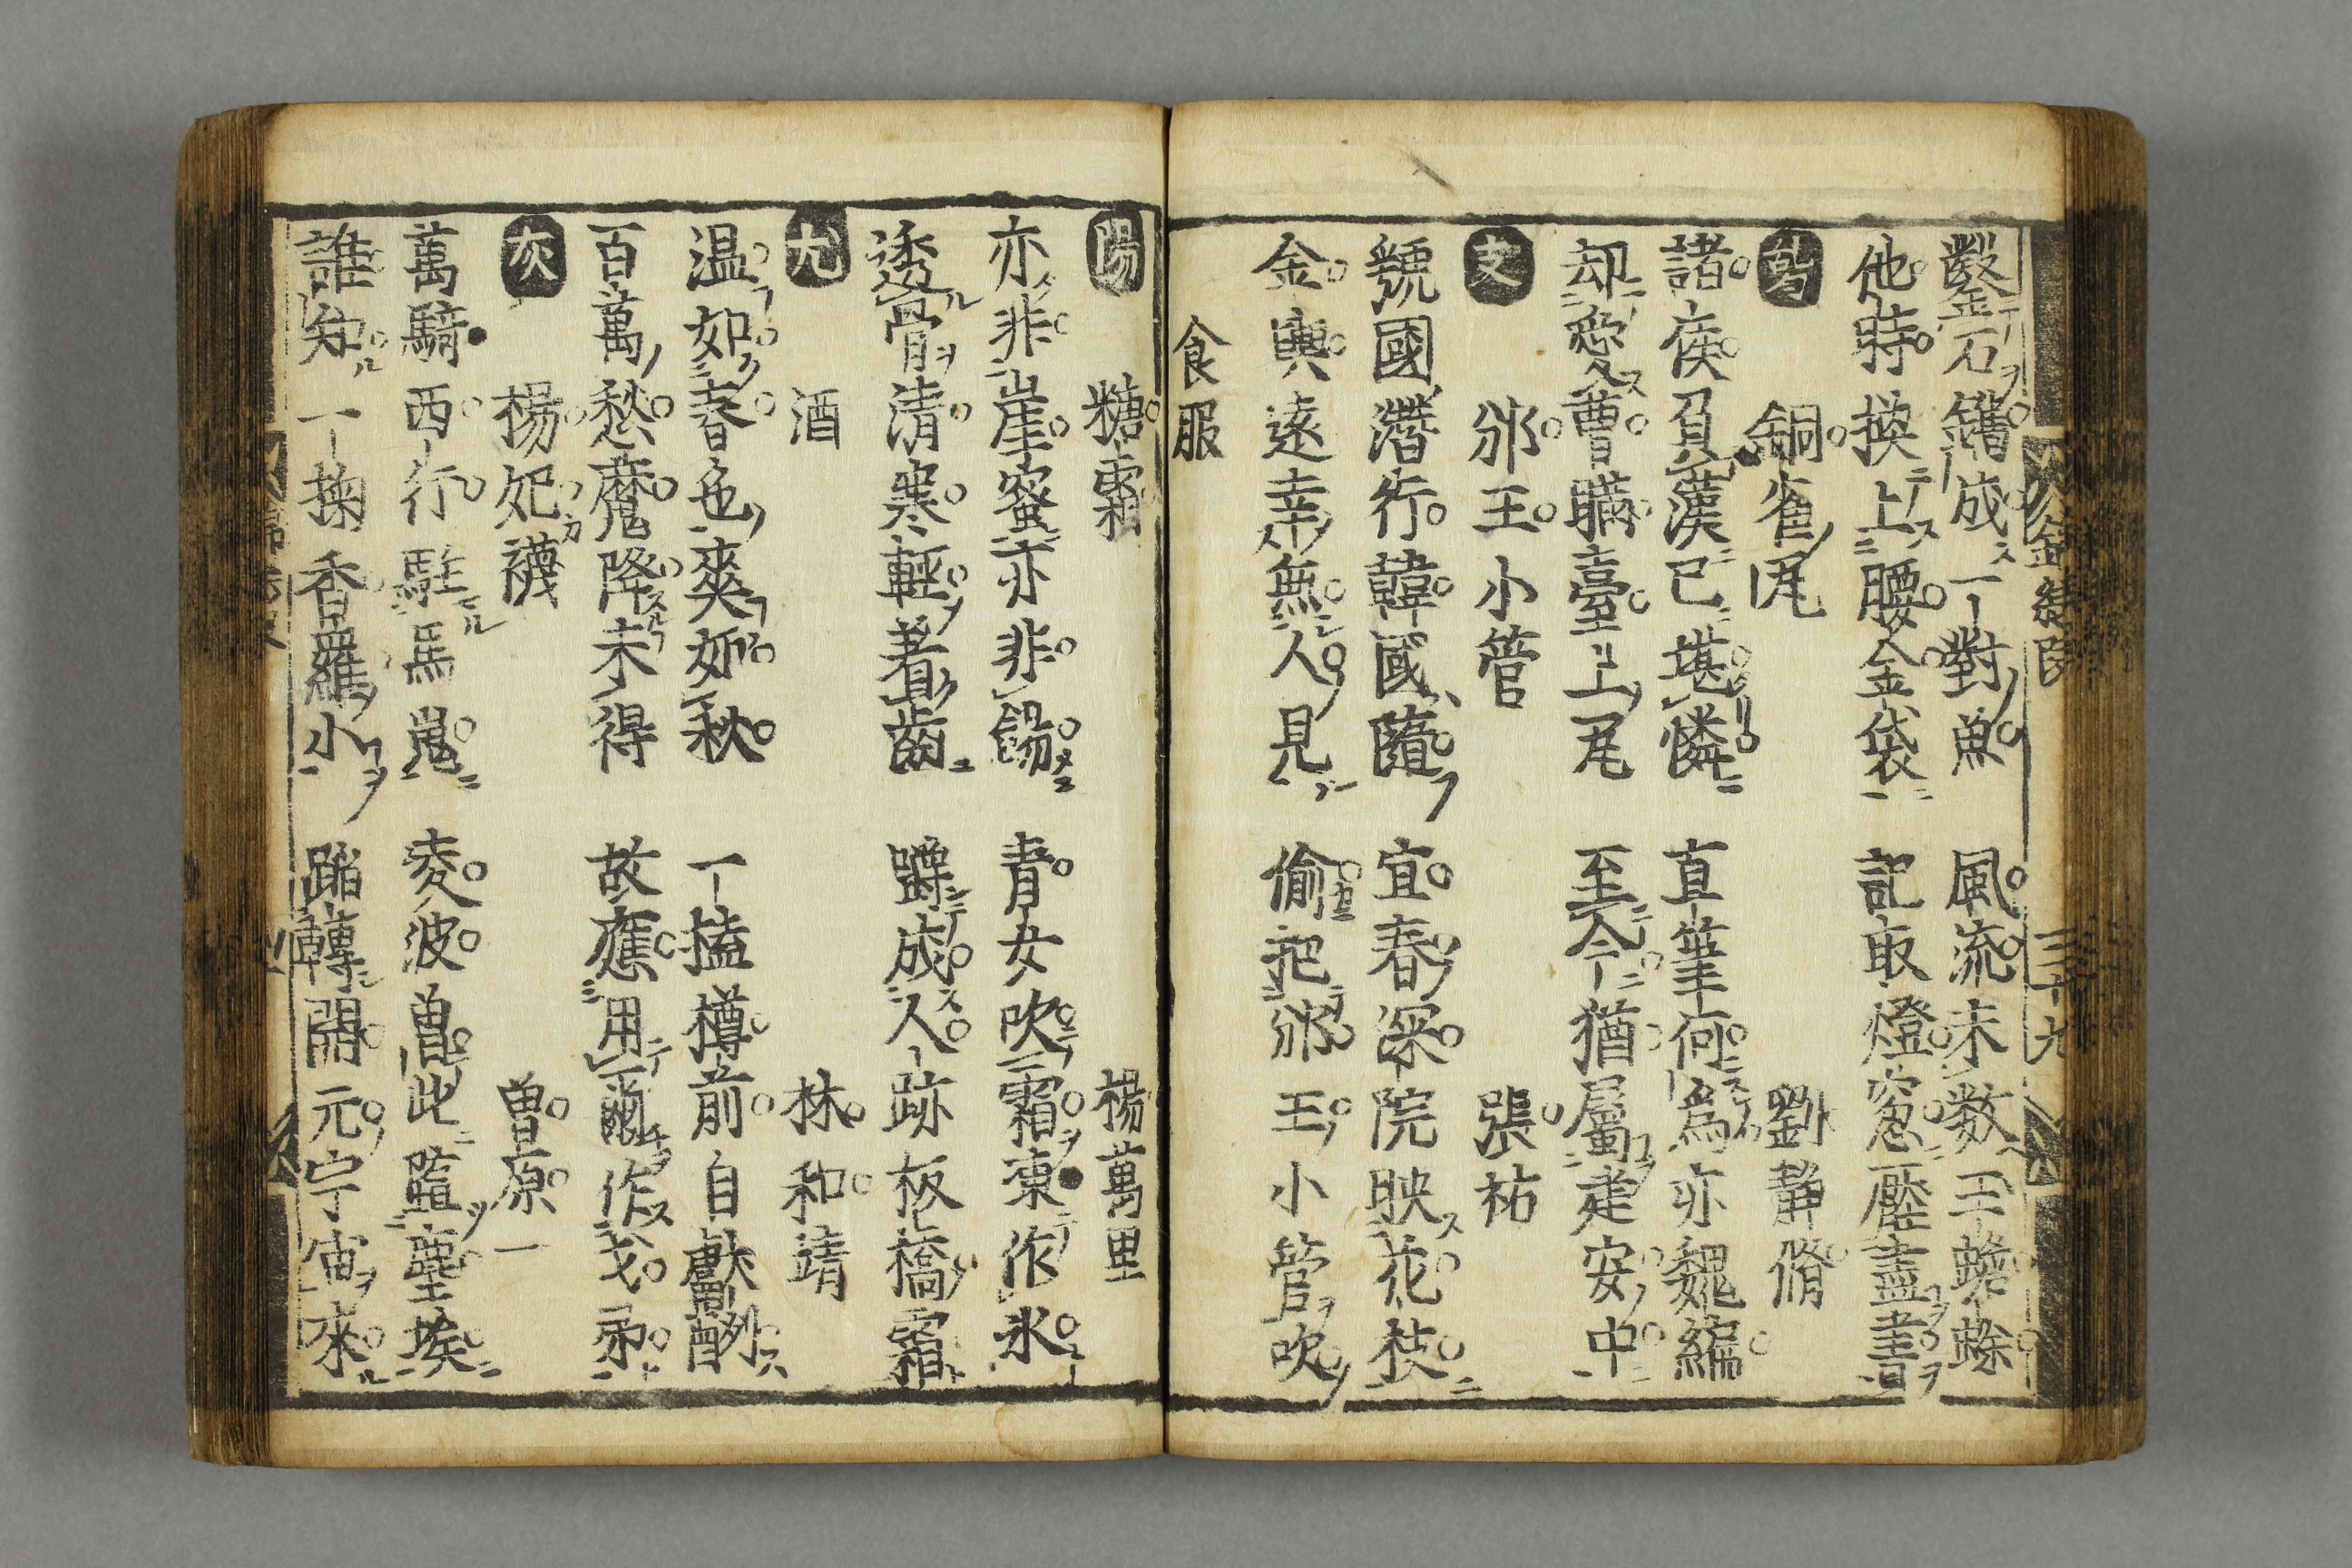 錦繍段 三十九
鑿石鐫成一對魚 風流未数玉蟾蜍
他時換上腰金袋 記取燈窓壓盡書
銅雀瓦 劉靜脩
諸侯負漢已堪憐 直筆何為亦魏編
却愛曹瞞臺上瓦 至今猶屬建安中
支 邠王小管 張祜
虢國潛行韓國隨 宜春深院映花枝
金輿遠幸無人見 偷把邠王小管吹
食服
陽 糖霜 楊萬里
亦非崖蜜亦非餳 青女吹霜凍作氷
透骨清寒輕着齒 成人跡板橋霜
尤 酒 林和靖
温如春色爽如秋 一榼樽前自獻酬
百萬愁魔降未得 故應用爾作戈矛
灰 楊妃襪 曽原一
萬騎西行駐馬嵬 凌波曽此墮塵埃
誰知一掬香羅小 踏轉開元宇宙來